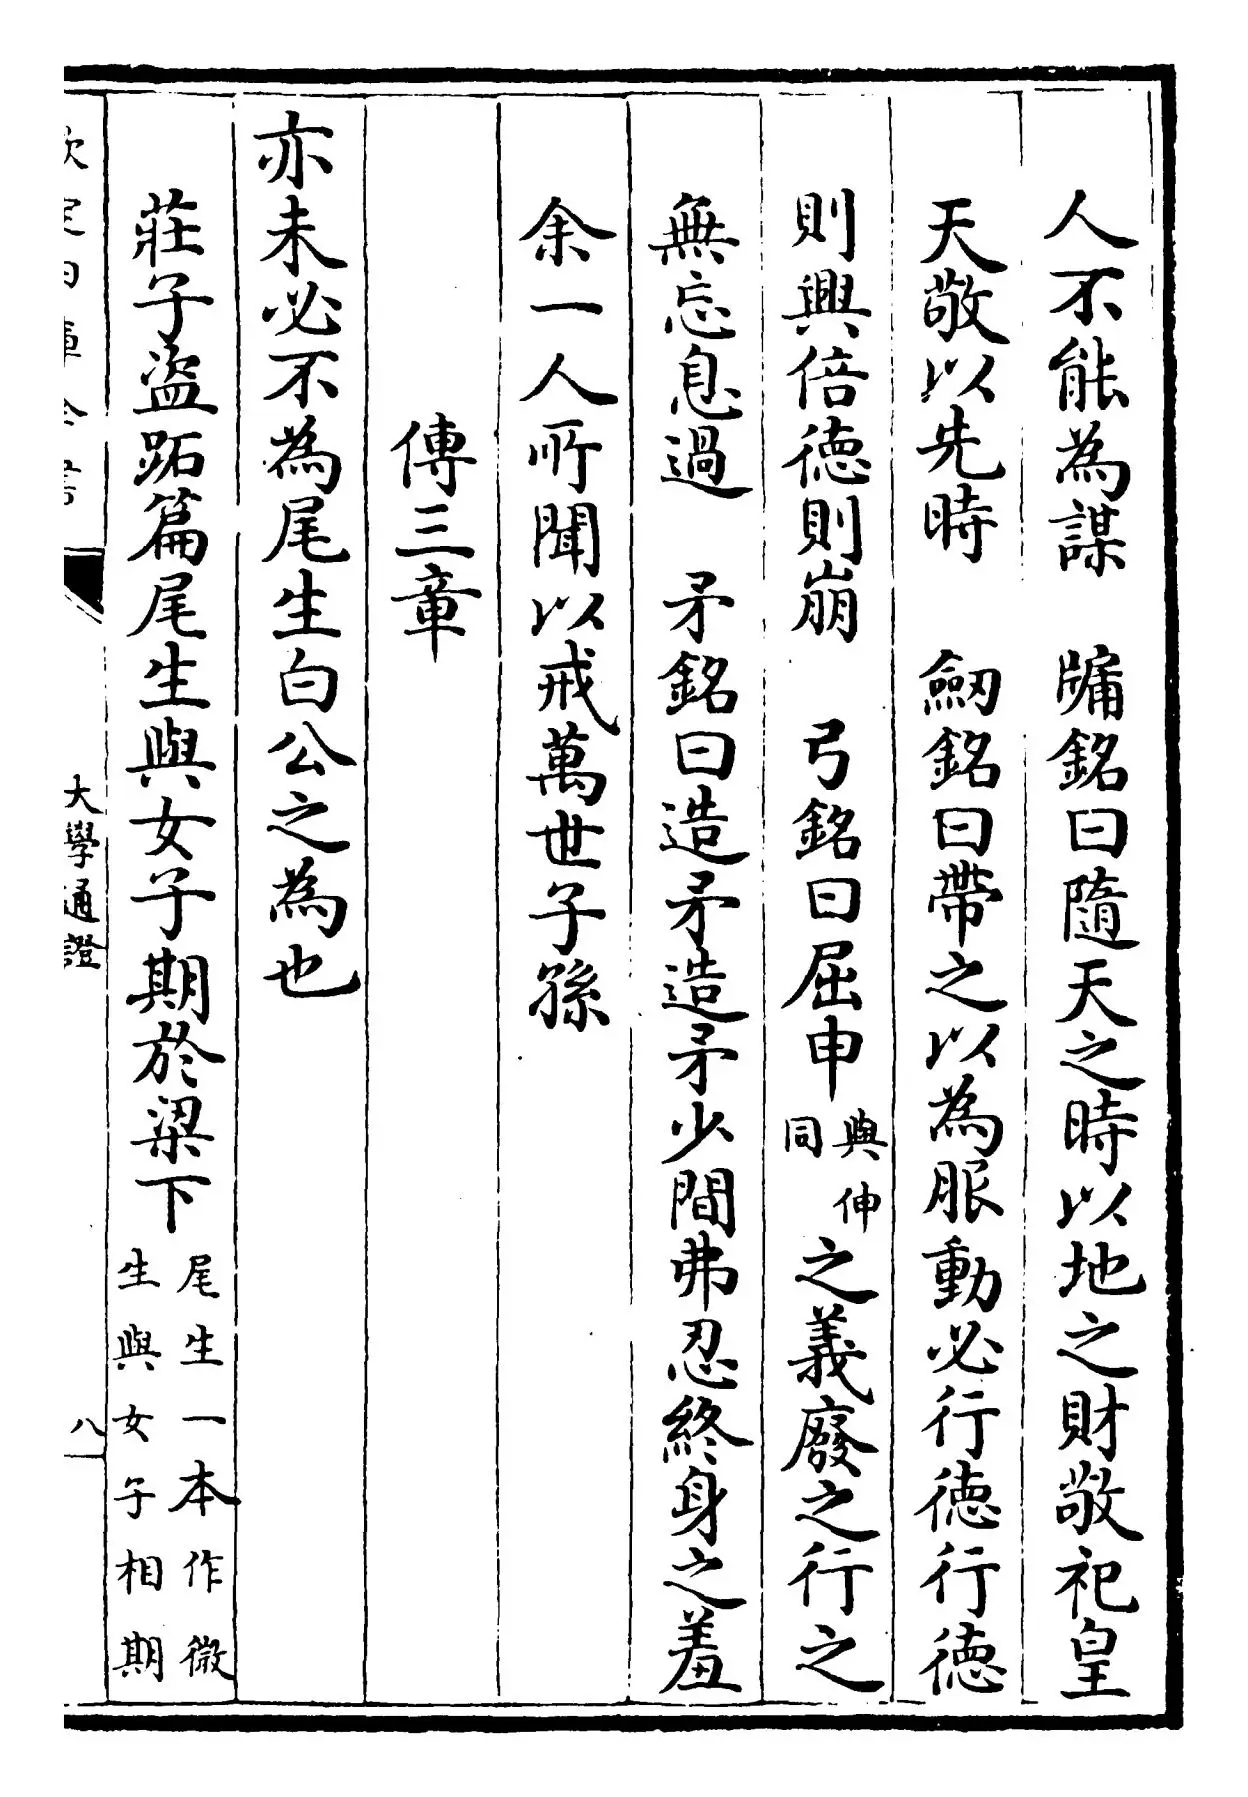 人不能為謀　牗銘曰隨天之時以地之財敬祀皇
天敬以先時　劒銘曰帶之以為服動必行徳行徳
則興倍徳則崩　弓銘曰屈申與伸同之義廢之行之
無忘息過　矛銘曰造矛造矛少間弗忍終身之羞
余一人所聞以戒萬世子孫
傳三章
亦未必不為尾生白公之為也
莊子盜跖篇尾生與女子期於梁下尾生一本作微生與女子相期
欽定四庫全書
大學通證
八